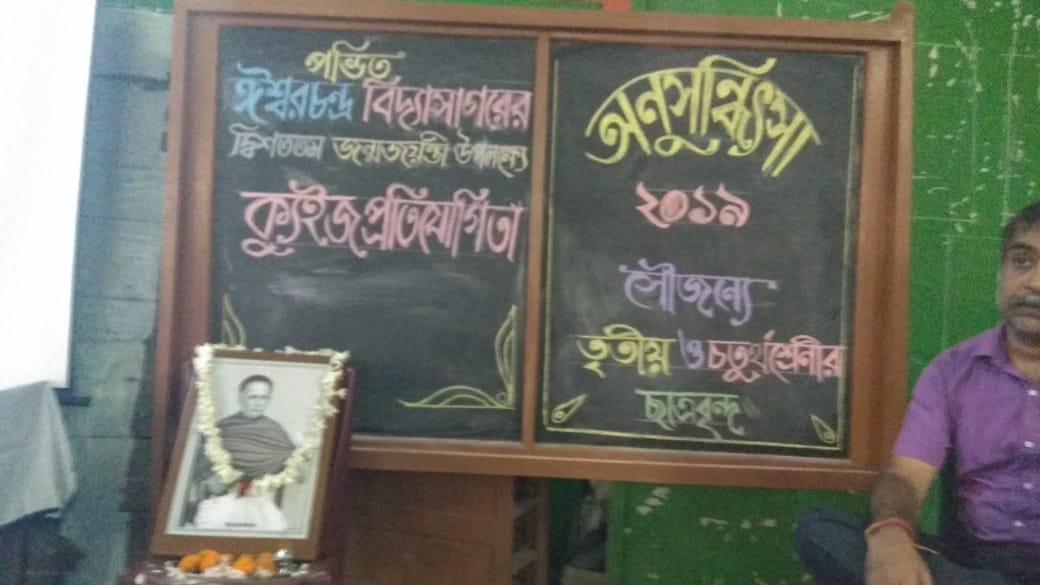 পন্ডিত
ঈশ্বরচন্দ্র বিদ্যাসাগরের
দ্বিশততম জন্মজয়ন্তী উপলক্ষ্যে
ক্যুইজ প্রতিযোগিতা
অনুসন্ধিৎসা
২০১৯
সৌজন্যে
তৃতীয় ও চতুর্থশ্রেণীর
ছাত্রবৃন্দ